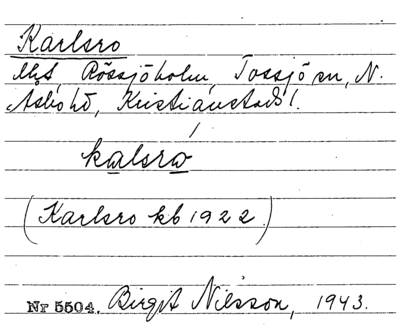 Karlsro
Rössjöholm, Tossjö sn, N.
Åsbo hd, Kristianstads l.
kalsrω
(Karlsro kb 1922)
Nr 5504. Birgit Nilsson, 1943.